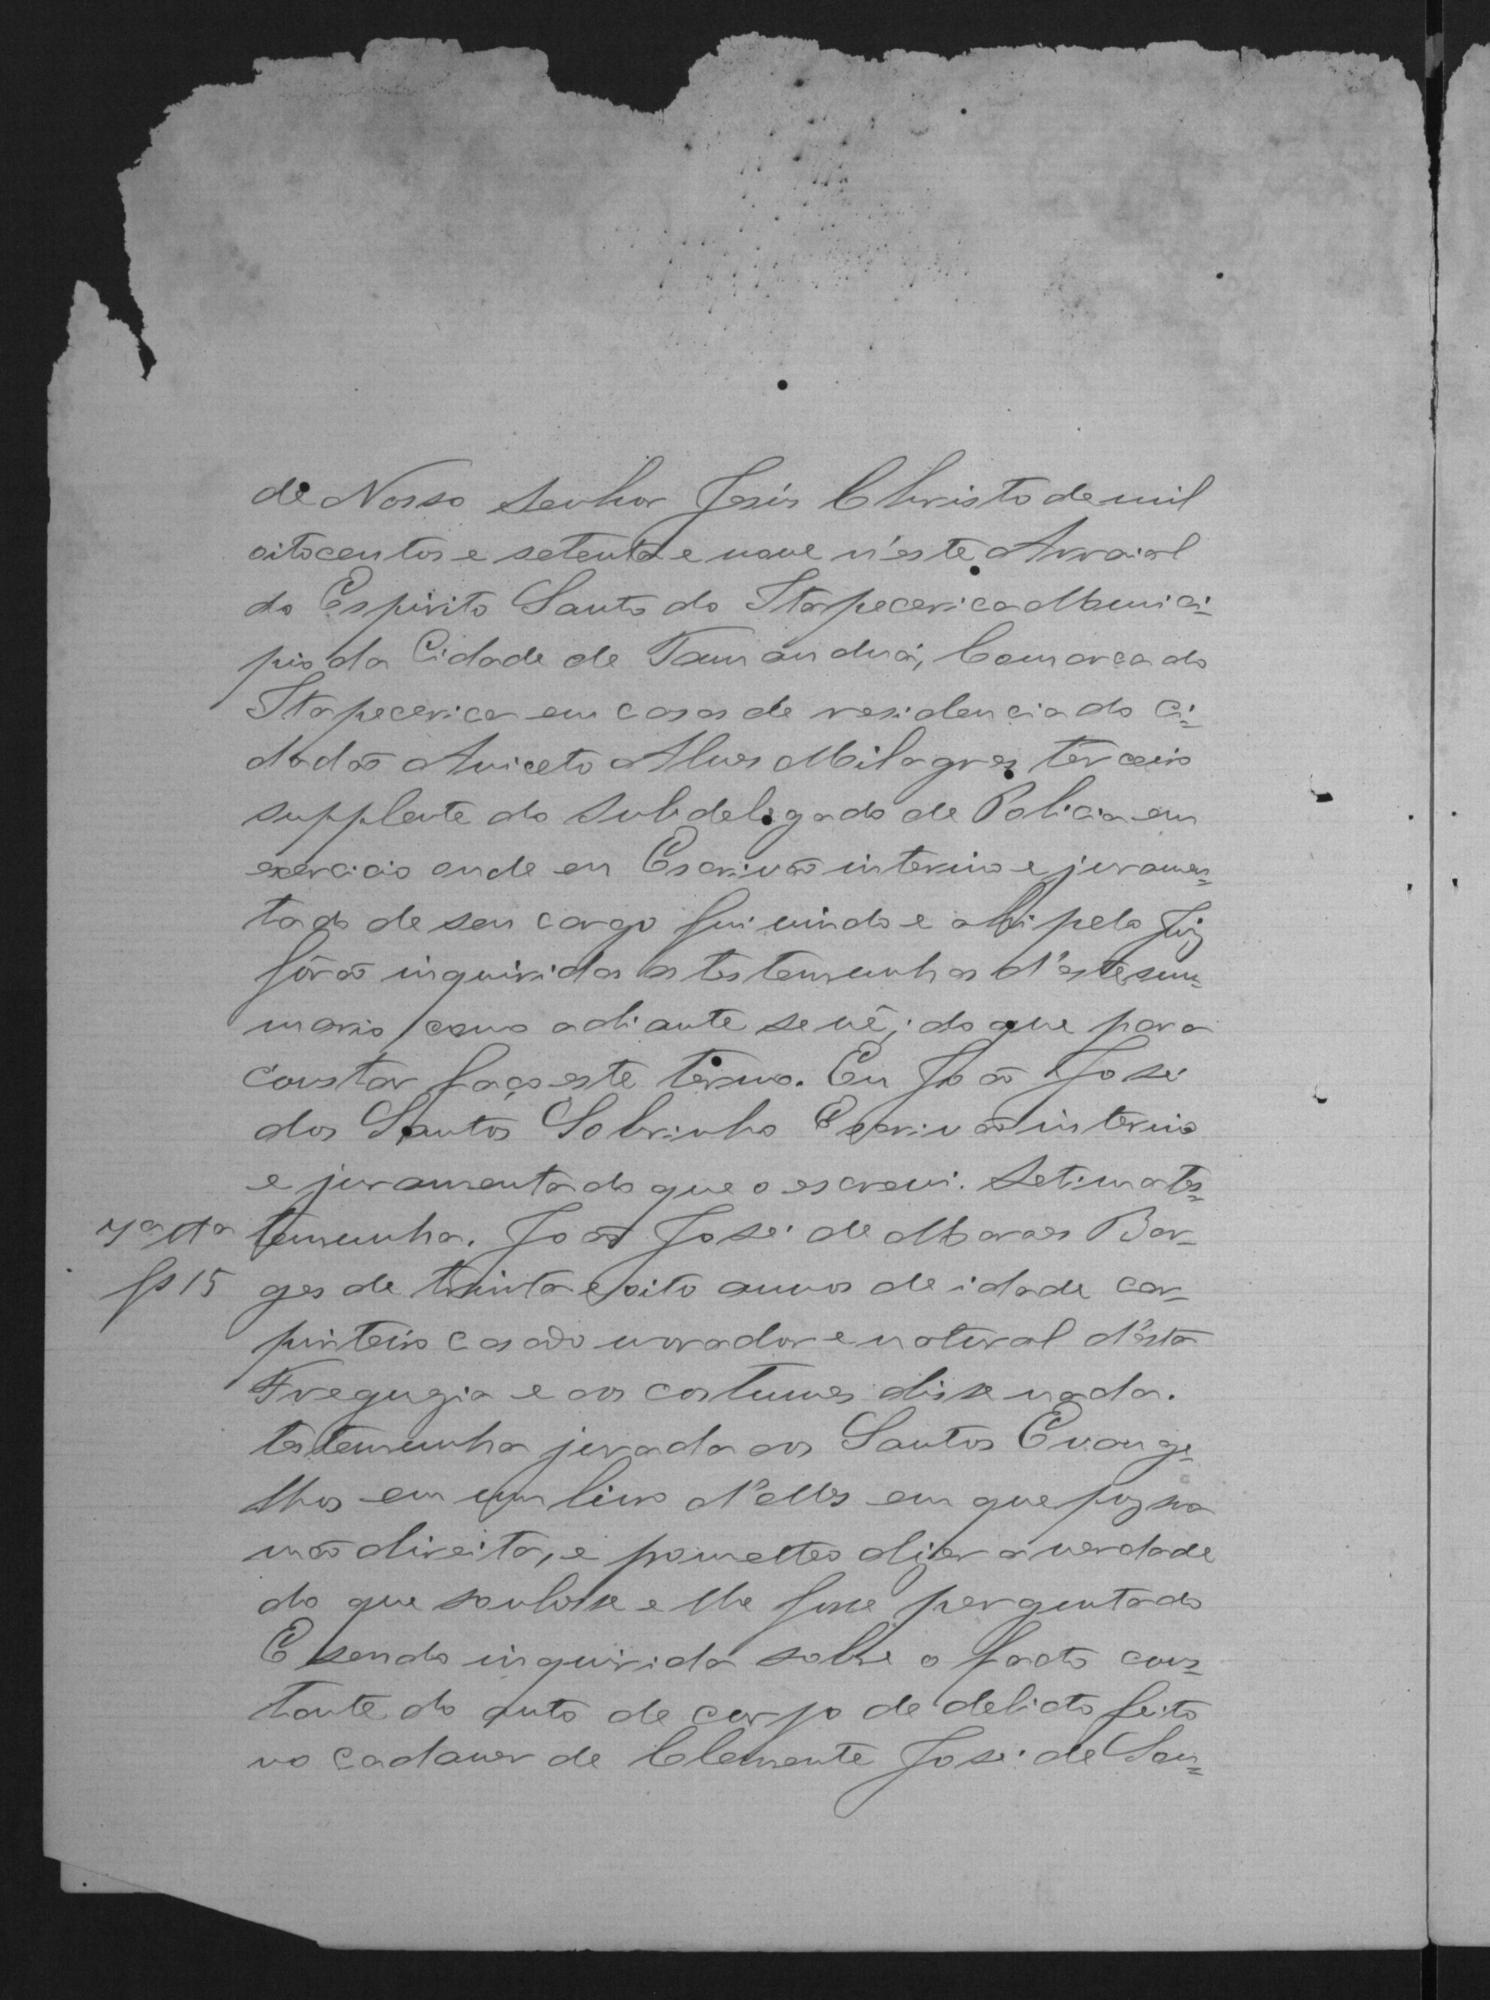 de Nosso Senhor Jesús Christo de mil
oitocentos e setenta e nove n'este Arraial
do Espirito Santo do Itapecerica Munici=
pio da Cidade de Tamanduá, Comarca do
Itapecerica em casas de residencia do ci=
dadão Aniceto Alves Milagres terceiro
supplente do Subdelegado de Policia em
exercicio onde eu Escrivão interino e juramen=
tado de seu cargo fui vindo e ahi pelo Juiz
fôrão inquiridas as testemunhas d'este sum=
mario como adiante se vê; do que para
constar faço este termo. Eu João José
dos Santos Sobrinho Escrivão interino
e juramentado que o escrevi. Setima tes=
7ª tª temunha. João José de Moraes Bor=
fs 15 ges de trinta e oito annos de idade car=
pinteiro casado morador e natural d'esta
Freguzia e aos costumes disse nada.
testemunha jurada aos Santos Evange=
lhos em um livro d'elles em que poz sua
mão direita, e prometteo dizer a verdade
do que soubesse e lhe fosse perguntado
E sendo inquirida sobre o facto cons=
tante do auto de corpo de delicto feito
no cadaver de Clemente José de Sou=